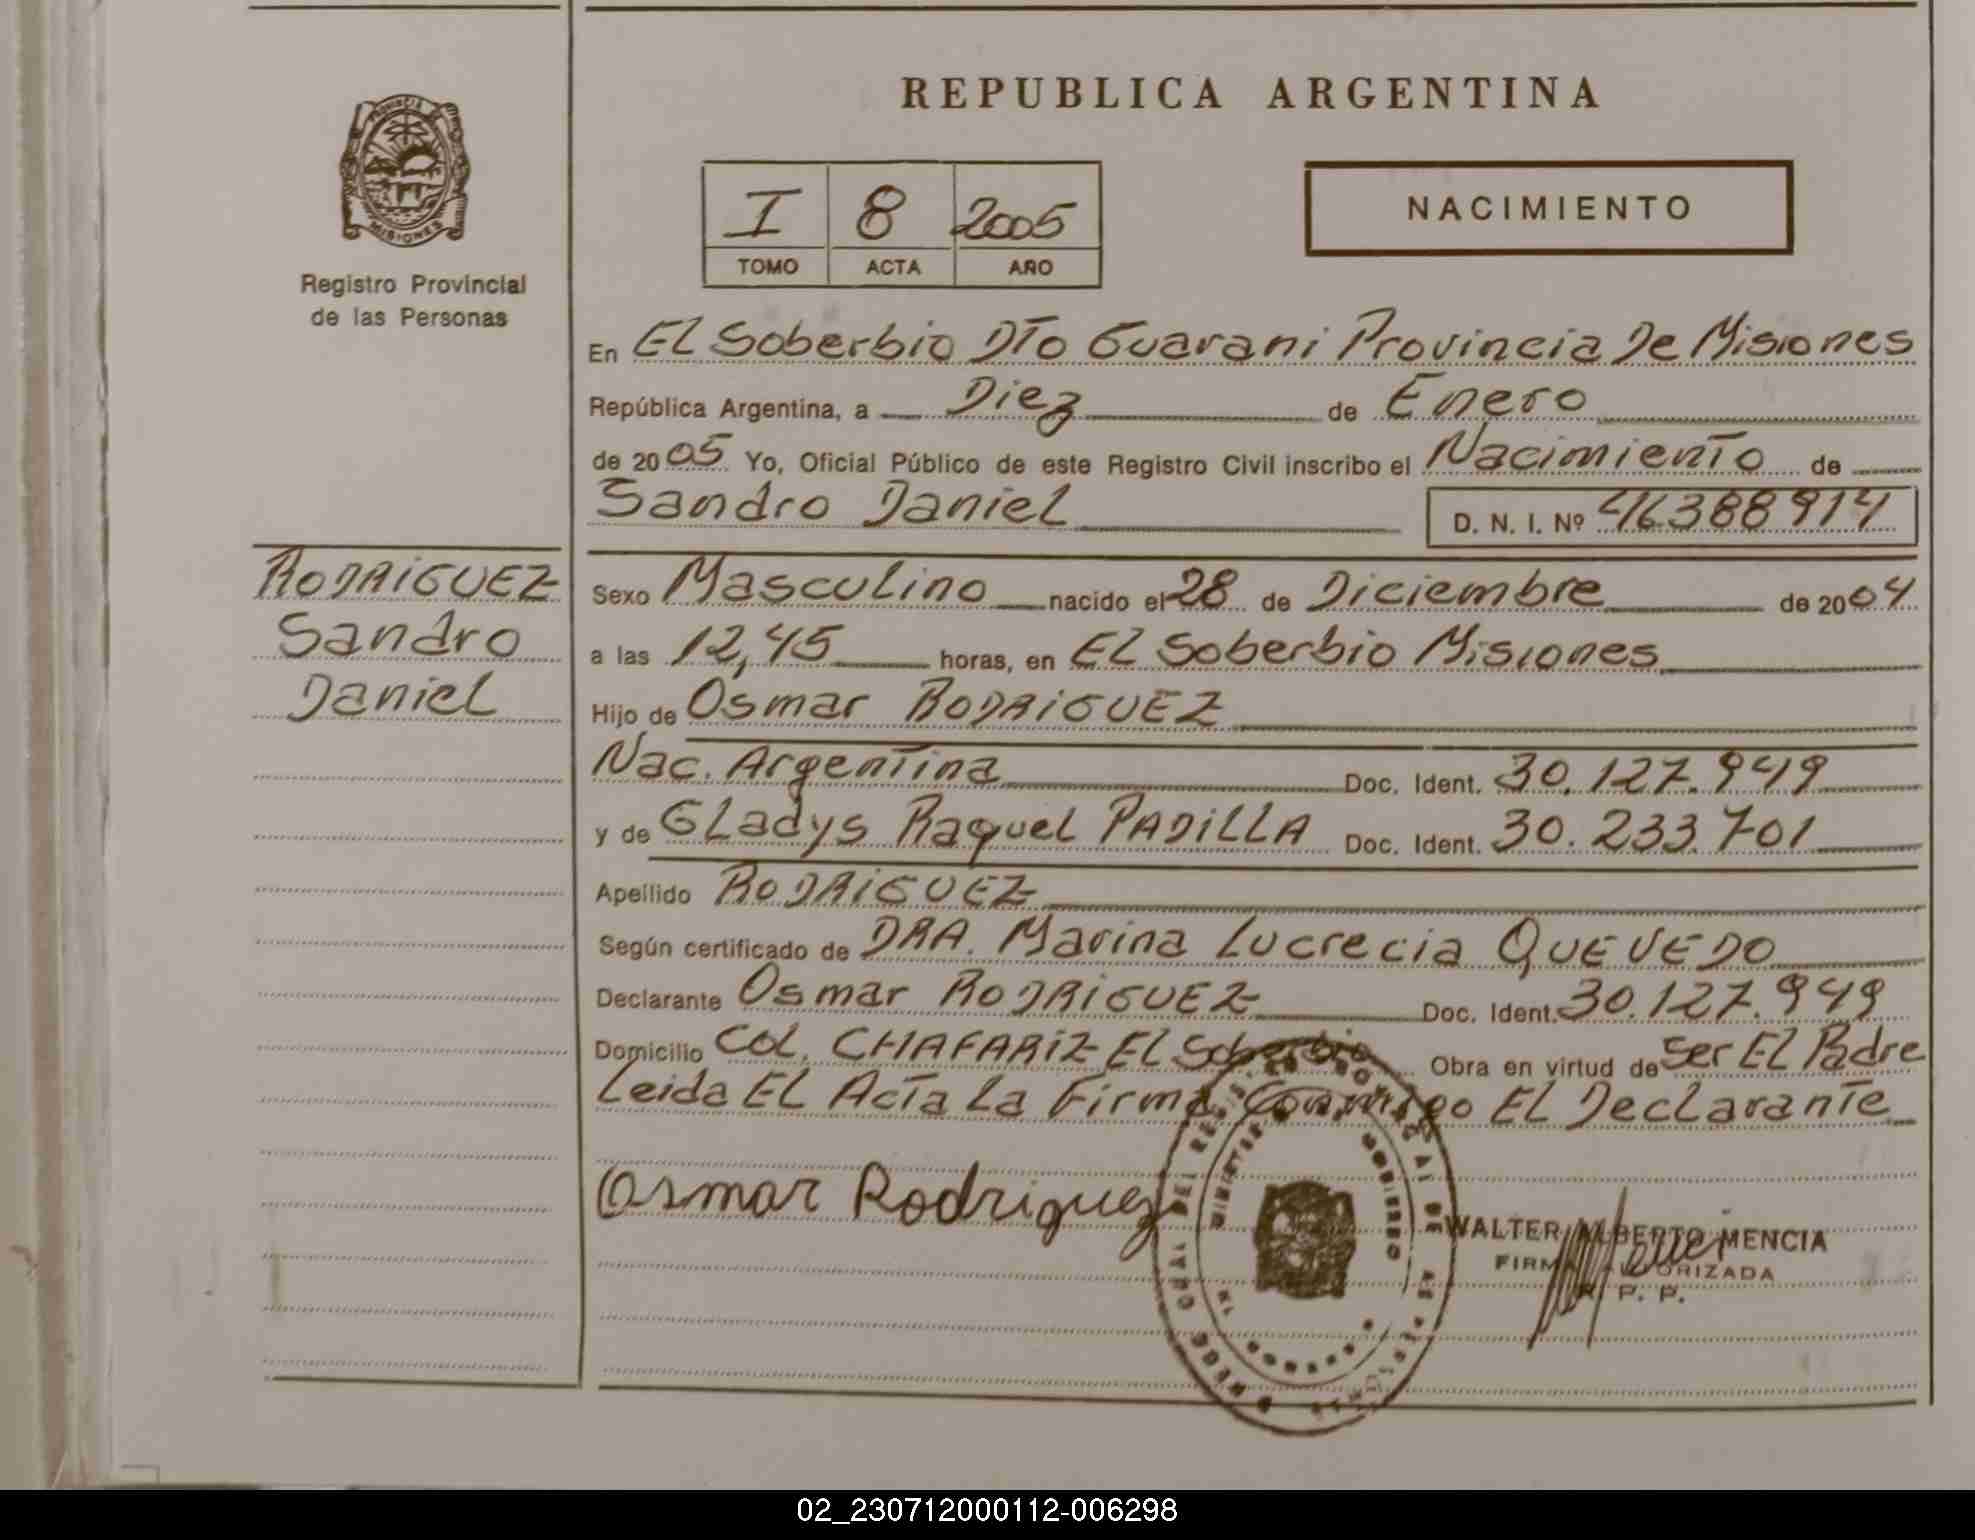 REPUBLICA ARGENTINA
PROVINCIA
MISIONES
Registro Provincial
de las Personas
I 8 2005
TOMO ACTA AÑO
NACIMIENTO
En El Soberbio DTo Guarani Provincia De Misiones
República Argentina, a Diez de Enero
de 2005 Yo, Oficial Público de este Registro Civil inscribo el Nacimiento de
Sandro Daniel D. N. I. Nº 46388914
RODRIGUEZ
Sandro
Daniel
Sexo Masculino nacido el 28 de Diciembre de 2004
a las 12,45 horas, en El Soberbio Misiones
Hijo de Osmar RODRIGUEZ
Nac. Argentina Doc. Ident. 30.127.949
y de Gladys Raquel PADILLA Doc. Ident. 30.233.701
Apellido RODRIGUEZ
Según certificado de DRA. Marina Lucrecia QUEVEDO
Declarante Osmar RODRIGUEZ Doc. Ident. 30.127.949
Domicilio COL. CHAFARIZ El Soberbio Obra en virtud de Ser El Padre
Leida El Acta La Firma Conmigo El Declarante
Osmar Rodriguez
WALTER ALBERTO MENCIA
FIRMA AUTORIZADA
R. P. P.
02_230712000112-006298